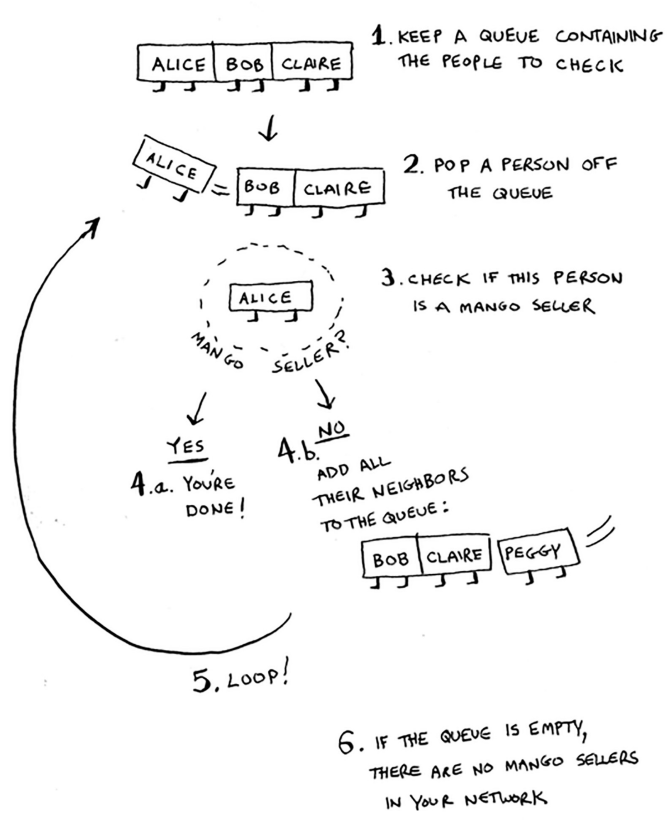 1. KEEP A QUEUE CONTAINING
THE PEOPLE TO CHECK
ALICE BOB CLAIRE
2. POP A PERSON OFF
THE QUEUE
ALICE BOB CLAIRE
3. CHECK IF THIS PERSON
IS A MANGO SELLER
ALICE
MANGO SELLER?
YES
4.a. YOU'RE
DONE!
NO
4.b.
ADD ALL
THEIR NEIGHBORS
TO THE QUEUE:
BOB CLAIRE PEGGY
5. LOOP!
6. IF THE QUEUE IS EMPTY,
THERE ARE NO MANGO SELLERS
IN YOUR NETWORK